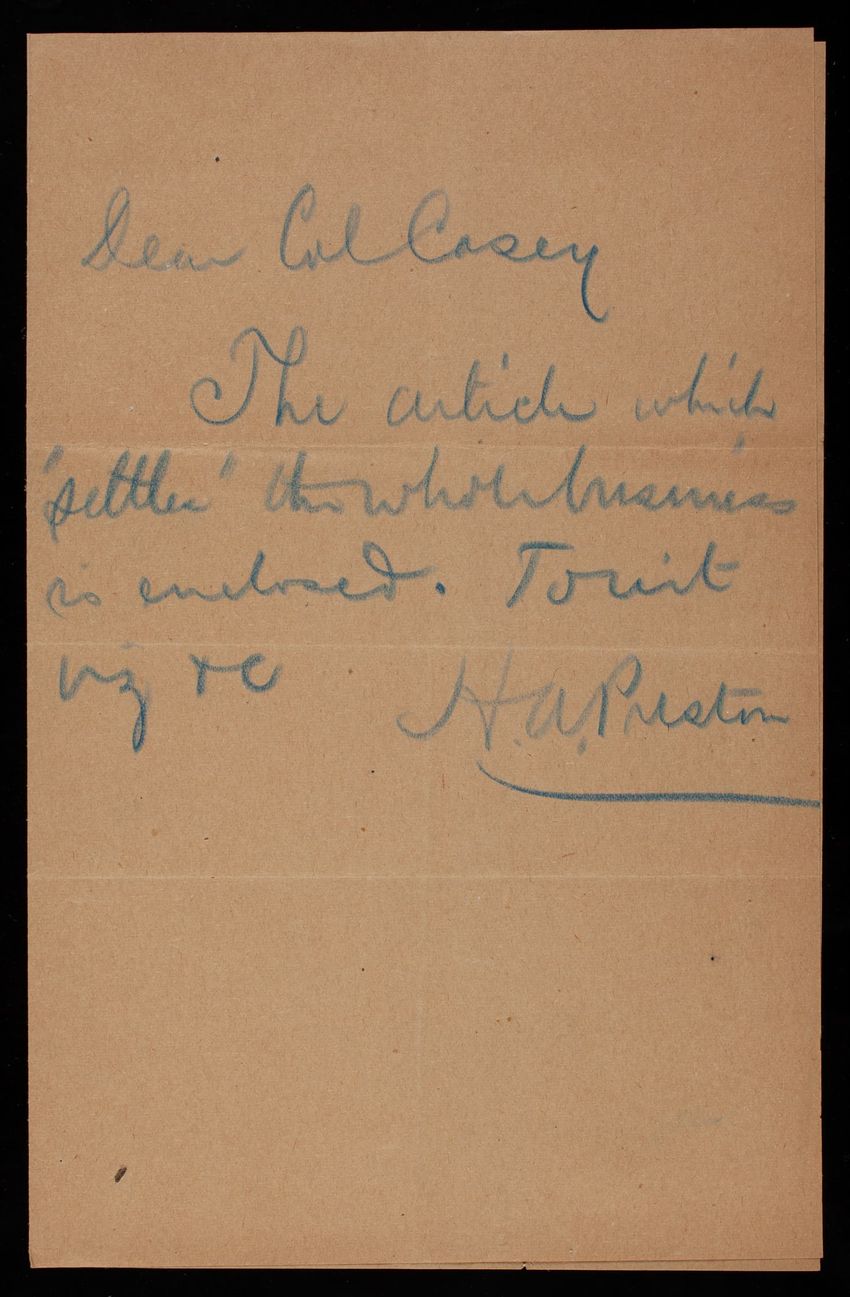 Dear Col Casey
The article which
"settles" the whole business
is enclosed. Towit
viz &c
H. A. Preston